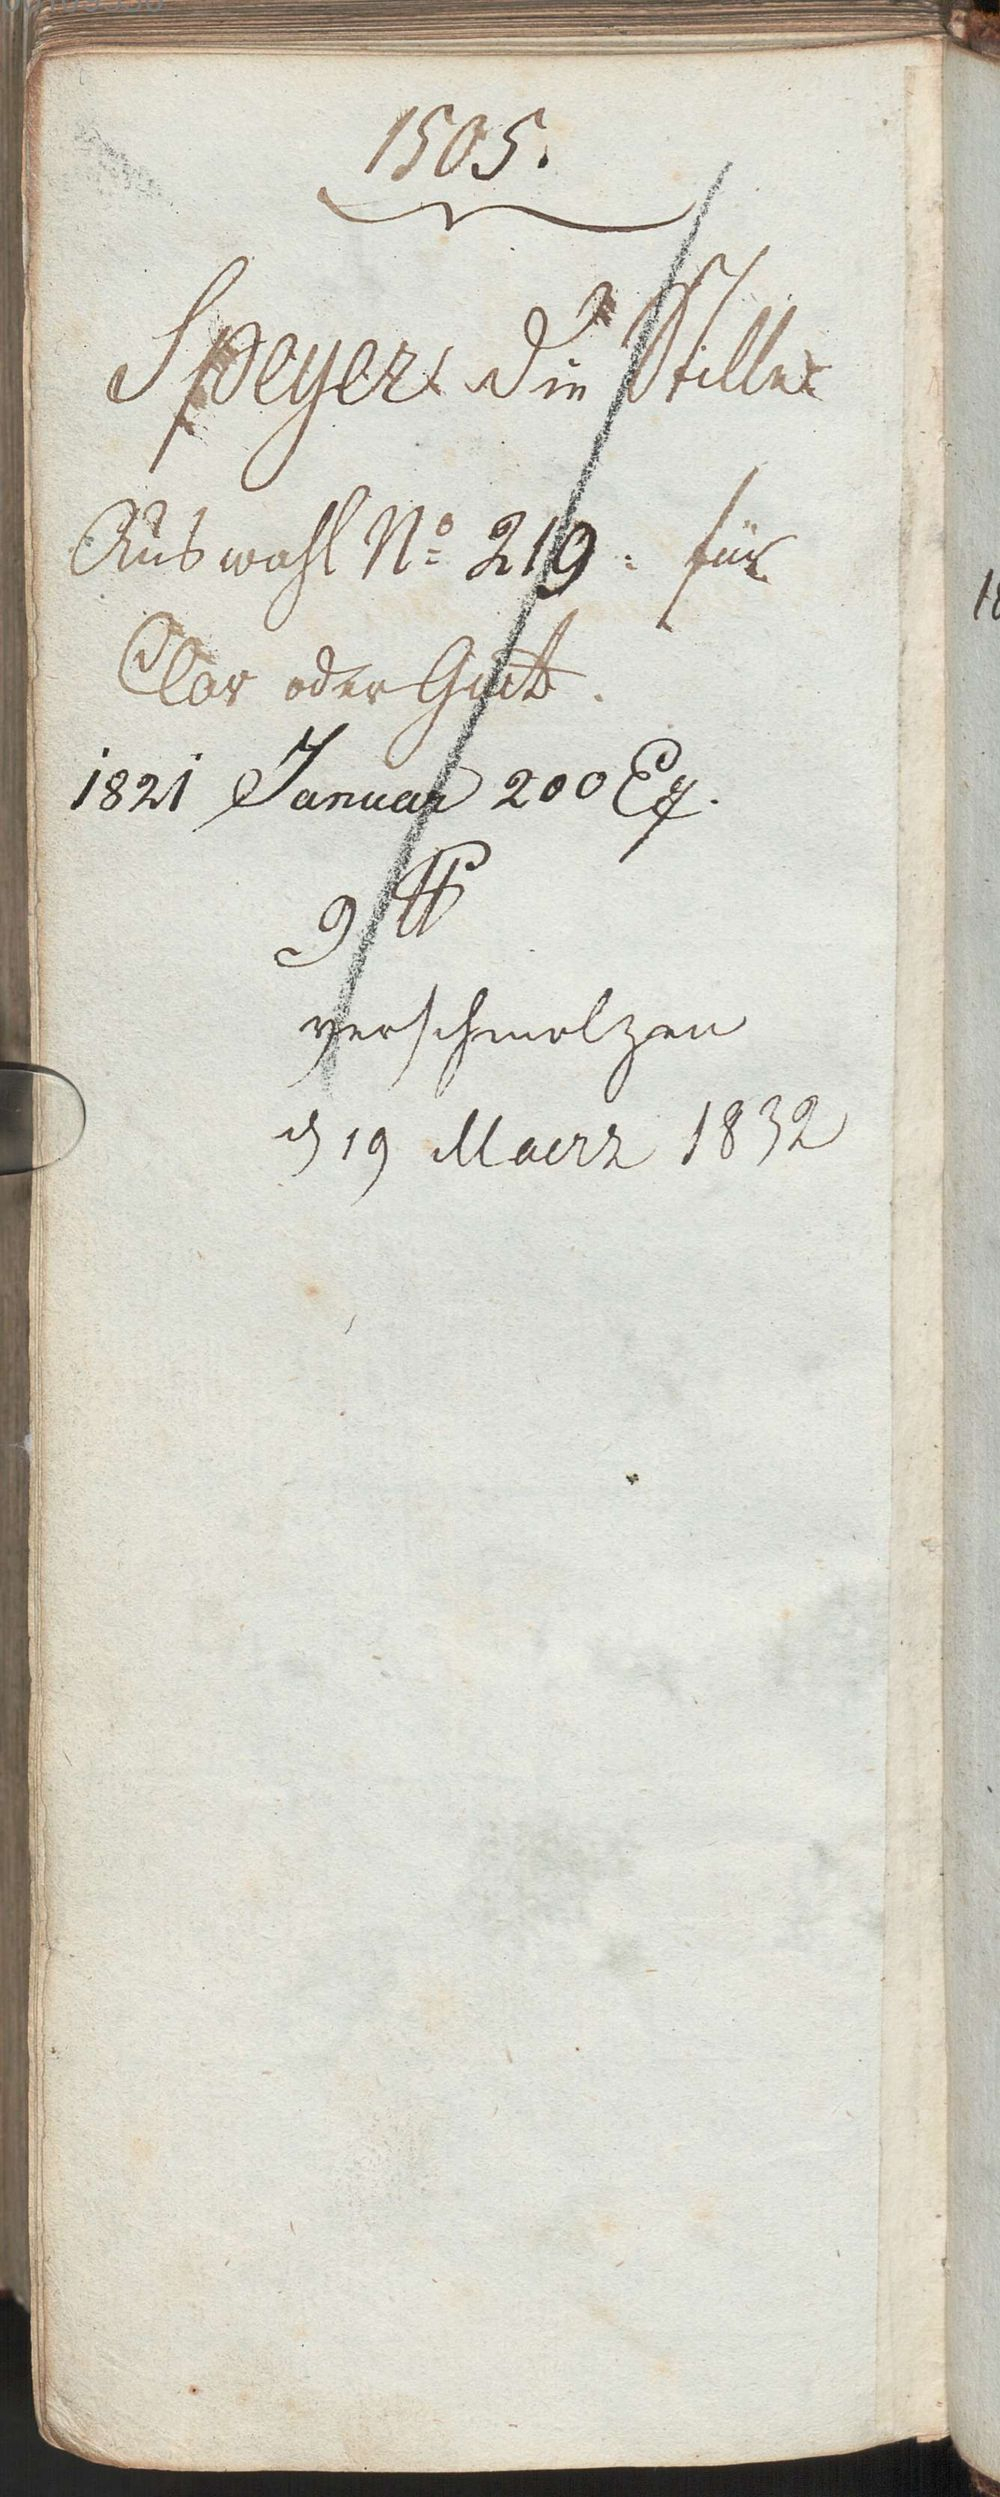 1505.
Speyer, die Stille
Auswahl No 219. für
Clav oder Guit.
1821 Januar 200 Ex.
9 ℔
verschmolzen
d 19 Maerz 1832